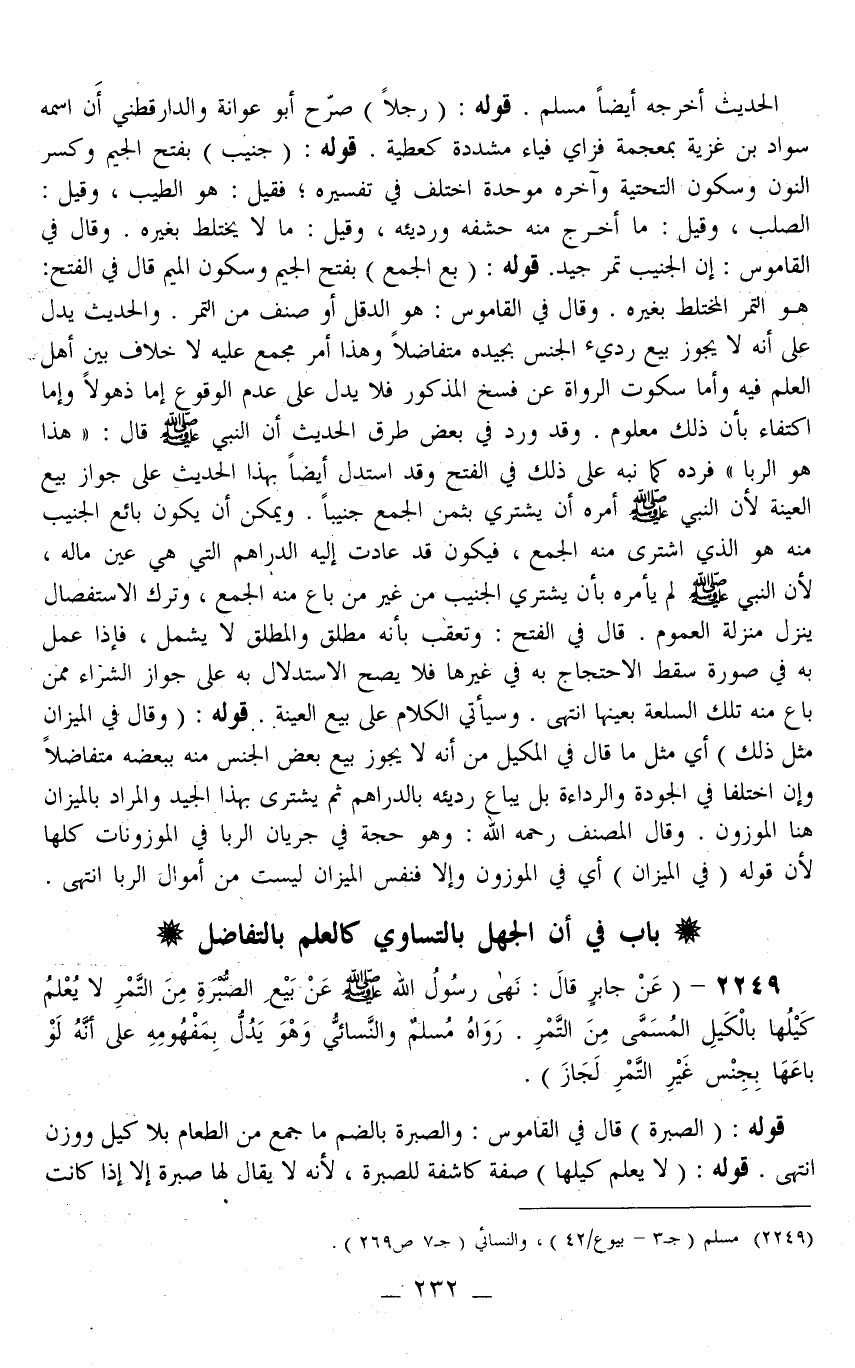 الحديث أخرجه أيضاً مسلم . قوله : ( رجلاً ) صرّح أبو عوانة والدارقطني أن اسمه
سواد بن غزية بمعجمة فزاي فياء مشددة كعطية . قوله : ( جنيب ) بفتح الجيم وكسر
النون وسكون التحتية وآخره موحدة اختلف في تفسيره ؛ فقيل : هو الطيب ، وقيل :
الصلب ، وقيل : ما أخرج منه حشفه ورديئه ، وقيل : ما لا يختلط بغيره . وقال في
القاموس : إن الجنيب تمر جيد. قوله : ( بع الجمع ) بفتح الجيم وسكون الميم قال في الفتح:
هو التمر المختلط بغيره . وقال في القاموس : هو الدقل أو صنف من التمر . والحديث يدل
على أنه لا يجوز بيع رديء الجنس بجيده متفاضلاً وهذا أمر مجمع عليه لا خلاف بين أهل
العلم فيه وأما سكوت الرواة عن فسخ المذكور فلا يدل على عدم الوقوع إما ذهولاً وإما
اكتفاء بأن ذلك معلوم . وقد ورد في بعض طرق الحديث أن النبي ﷺ قال : « هذا
هو الربا » فرده كما نبه على ذلك في الفتح وقد استدل أيضاً بهذا الحديث على جواز بيع
العينة لأن النبي ﷺ أمره أن يشتري بثمن الجمع جنيباً . ويمكن أن يكون بائع الجنيب
منه هو الذي اشترى منه الجمع ، فيكون قد عادت إليه الدراهم التي هي عين ماله ،
لأن النبي ﷺ لم يأمره بأن يشتري الجنيب من غير من باع منه الجمع ، وترك الاستفصال
ينزل منزلة العموم . قال في الفتح : وتعقب بأنه مطلق والمطلق لا يشمل ، فإذا عمل
به في صورة سقط الاحتجاج به في غيرها فلا يصح الاستدلال به على جواز الشراء ممن
باع منه تلك السلعة بعينها انتهى . وسيأتي الكلام على بيع العينة . قوله : ( وقال في الميزان
مثل ذلك ) أي مثل ما قال في المكيل من أنه لا يجوز بيع بعض الجنس منه ببعضه متفاضلاً
وإن اختلفا في الجودة والرداءة بل يباع رديئه بالدراهم ثم يشترى بهذا الجيد والمراد بالميزان
هنا الموزون . وقال المصنف رحمه الله : وهو حجة في جريان الربا في الموزونات كلها
لأن قوله ( في الميزان ) أي في الموزون وإلا فنفس الميزان ليست من أموال الربا انتهى .
باب في أن الجهل بالتساوي كالعلم بالتفاضل
٢٢٤٩ – ( عَنْ جابرٍ قالَ : نَهىٰ رسُولُ الله ﷺ عَنْ بَيْعِ الصُّبْرَةِ مِنَ التَّمْرِ لا يُعْلَمُ
كَيْلُها بالْكَيلِ المُسَمَّى مِنَ التَّمْرِ . رَوَاهُ مُسلمٌ والنَّسائيُّ وَهْوَ يَدُلُّ بِمَفْهُومِهِ على أنَّهُ لَوْ
باعَهَا بِجِنْسٍ غَيْرِ التَّمْرِ لَجَازَ ) .
قوله : ( الصبرة ) قال في القاموس : والصبرة بالضم ما جمع من الطعام بلا كيل ووزن
انتهى . قوله : ( لا يعلم كيلها ) صفة كاشفة للصبرة ، لأنه لا يقال لها صبرة إلا إذا كانت
(٢٢٤٩) مسلم ( جـ٣ – بيوع/٤٢ ) ، والنسائي ( جـ٧ ص٢٦٩ ) .
ــ ٢٣٢ ــ